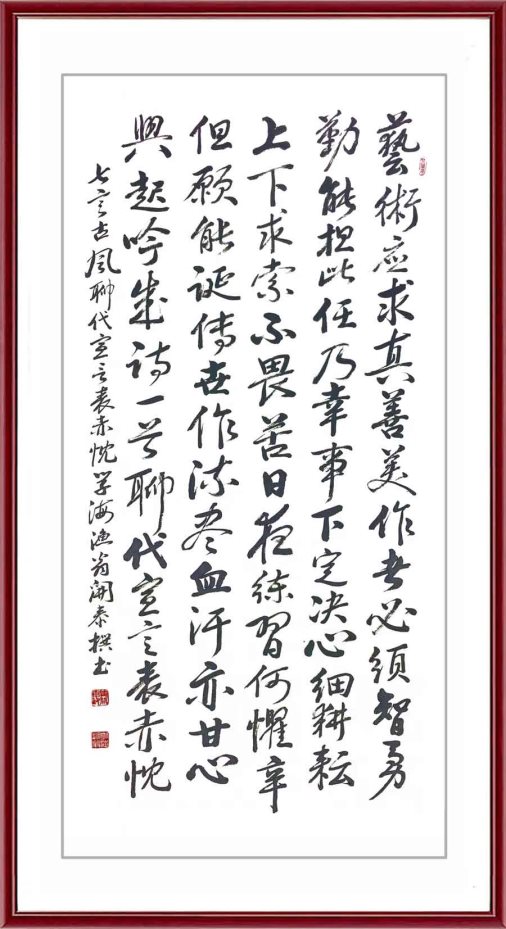 藝術应求真善美作者必须智勇
勤能担此任乃幸事下定决心细耕耘
上下求索不畏苦日夜练習何懼辛
但愿能诞传世作流尽血汗亦甘心
興起吟成诗一首聊代宣言表赤忱
七言古风聊代宣言表赤忱学海渔翁開泰撰书